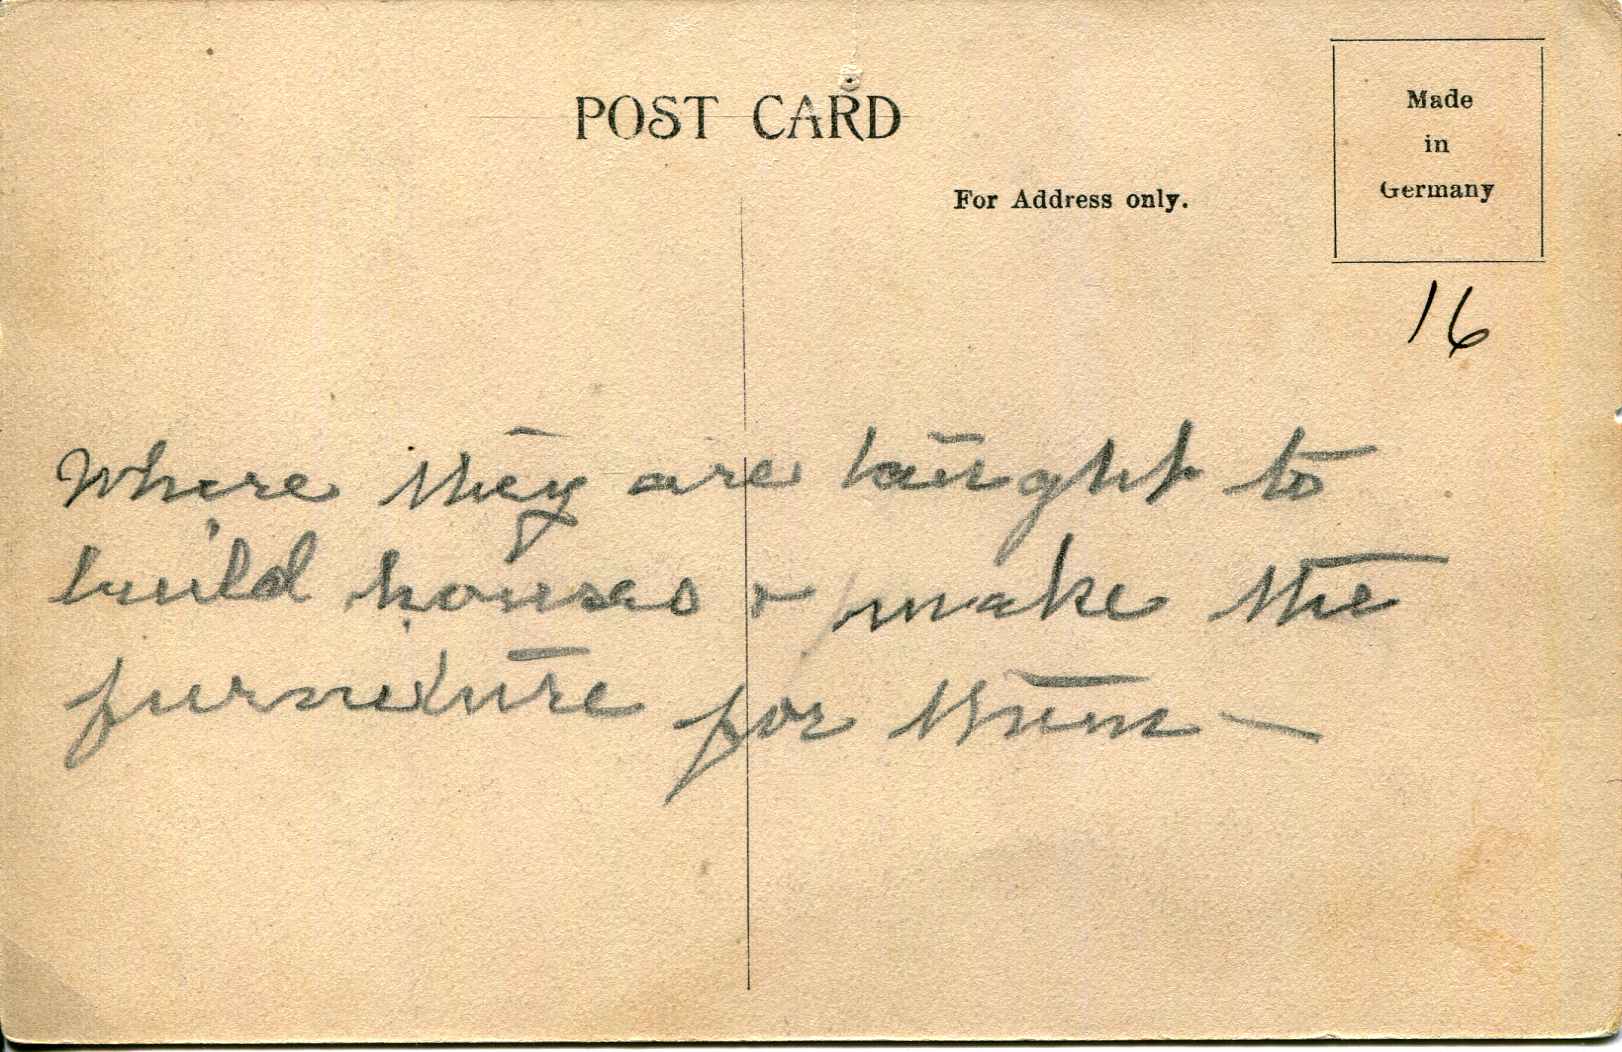 POST CARD
For Address only.
Made
in
Germany
16
Where they are taught to
build houses & make the
furniture for them —